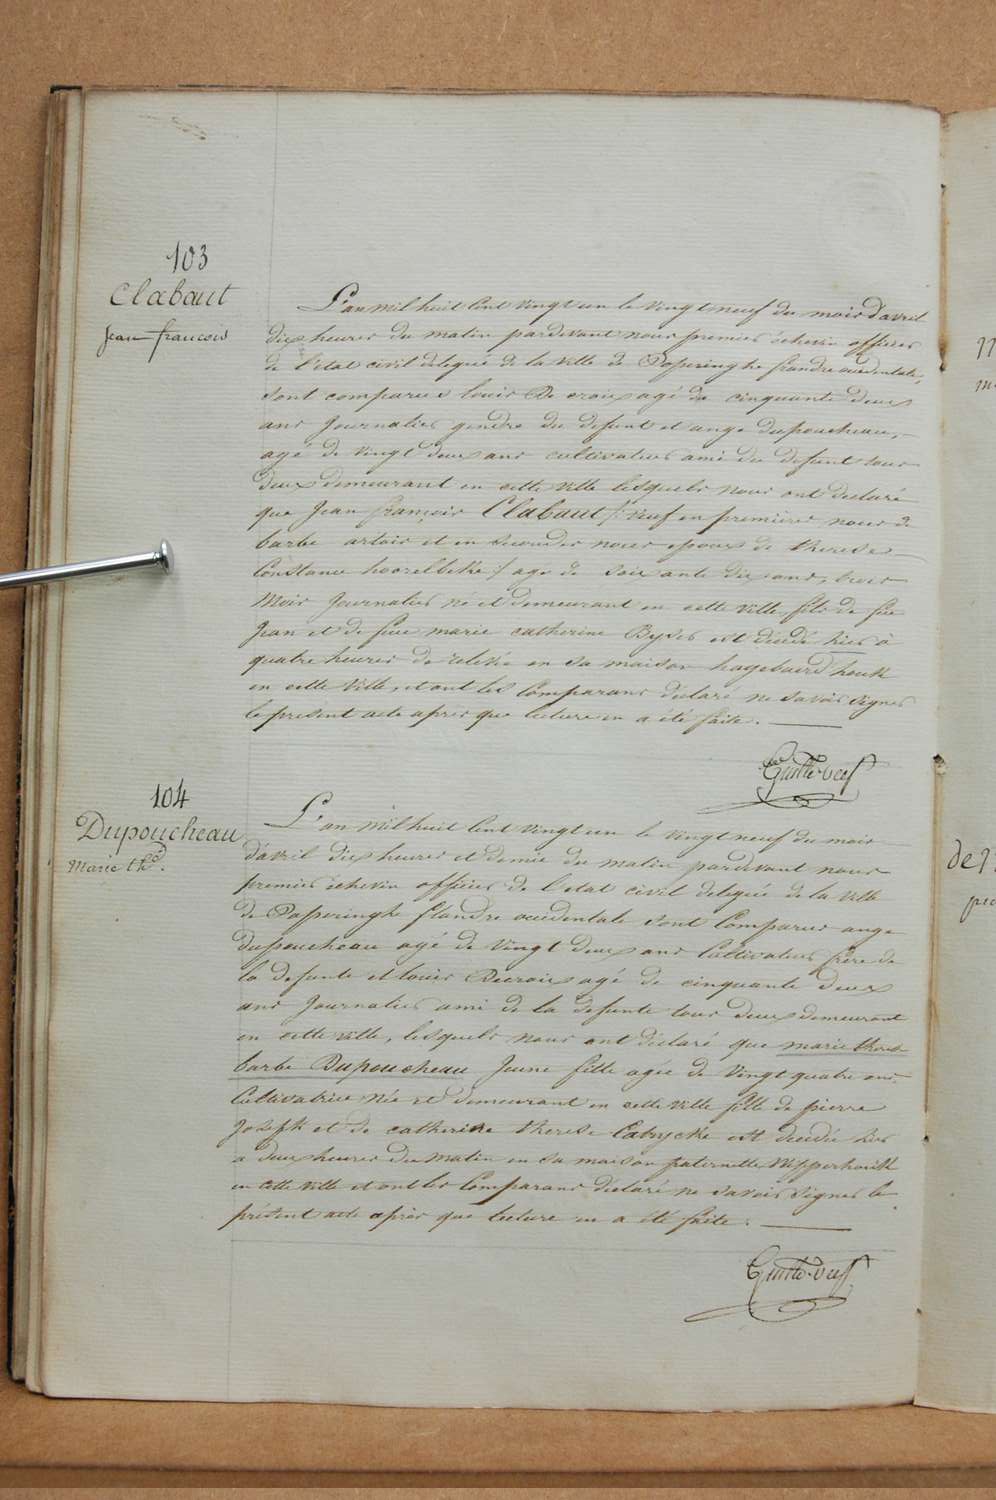 103
Clabaut
Jean françois
L'an mil huit Cent vingt un le vingt neuf du mois d'avril
dix heures du matin pardevant nous premier échevin officier
de l'etat civil delegué de la ville de Poperinghe flandre occidentale,
sont comparus louis De croix agé de cinquante deux
ans Journalier gendre du defunt et ange dupoucheau,
agé de vingt deux ans cultivateur ami du defunt tous
deux demeurant en cette ville lesquels nous ont declaré
que Jean françois Clabaut /: veuf en premières noces de
barbe artois et en secondes noces epoux de therese
Constance :/ agé de soixante dix ans, trois
Mois Journalier né et demeurant en cette ville, fils de feu
Jean et de feue marie catherine est décédé hier à
quatre heures de relevée en sa maison
en cette ville, et ont les Comparans déclaré ne savoir signer
le présent acte après que lecture en a été faite.
104
Dupoucheau
Marie thse.
L'an mil huit Cent vingt un le vingt neuf du mois
d'avril dix heures et demie du matin pardevant nous
premier échevin officier de l'etat civil delegué de la ville
de Poperinghe flandre occidentale sont Comparus ange
dupoucheau agé de vingt deux ans Cultivateur frère de
la defunte et louis Decroix agé de cinquante deux
ans Journalier ami de la defunte tous deux demeurant
en cette ville, lesquels nous ont déclaré que marie therese
barbe Dupoucheau Jeune fille agée de vingt quatre ans
Cultivatrice née et demeurant en cette ville fille de pierre
Joseph et de catherine therese est decedée hier
a deux heures du matin en sa maison paternelle
en cette ville et ont les Comparans déclaré ne savoir signer le
présent acte après que lecture en a été faite.